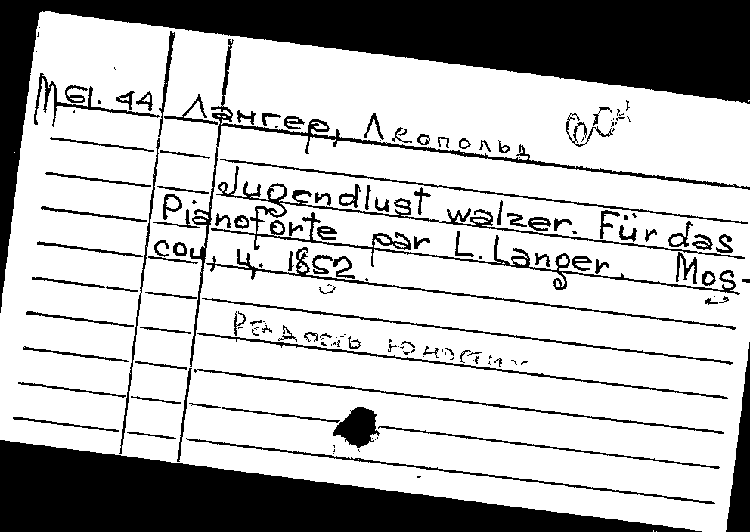 М 61. 44. Лангер, Леопольд
Jugendlust walzer. Für das
Pianoforte par L. Langer. Mos-
cou, ц. 1852.
Радость юности